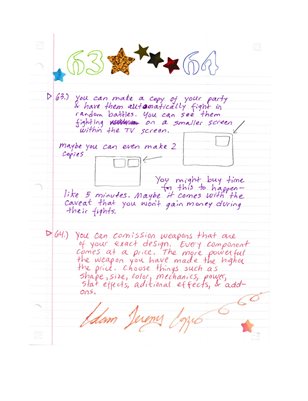 63 64
63.) you can make a copy of your party
& have them automatically fight in
random battles. You can see them
fighting on a smaller screen
within the TV screen.
Maybe you can even make 2
copies
You might buy time
for this to happen-
like 5 minutes. Maybe it comes with the
caveat that you won't gain money during
their fights.
64.) You can comission weapons that are
of your exact design. Every component
comes at a price. The more powerful
the weapon you have made the higher
the price. Choose things such as
shape, size, color, mechanics, power,
stat effects, aditional effects, & add-
ons.
Adam Jeremy